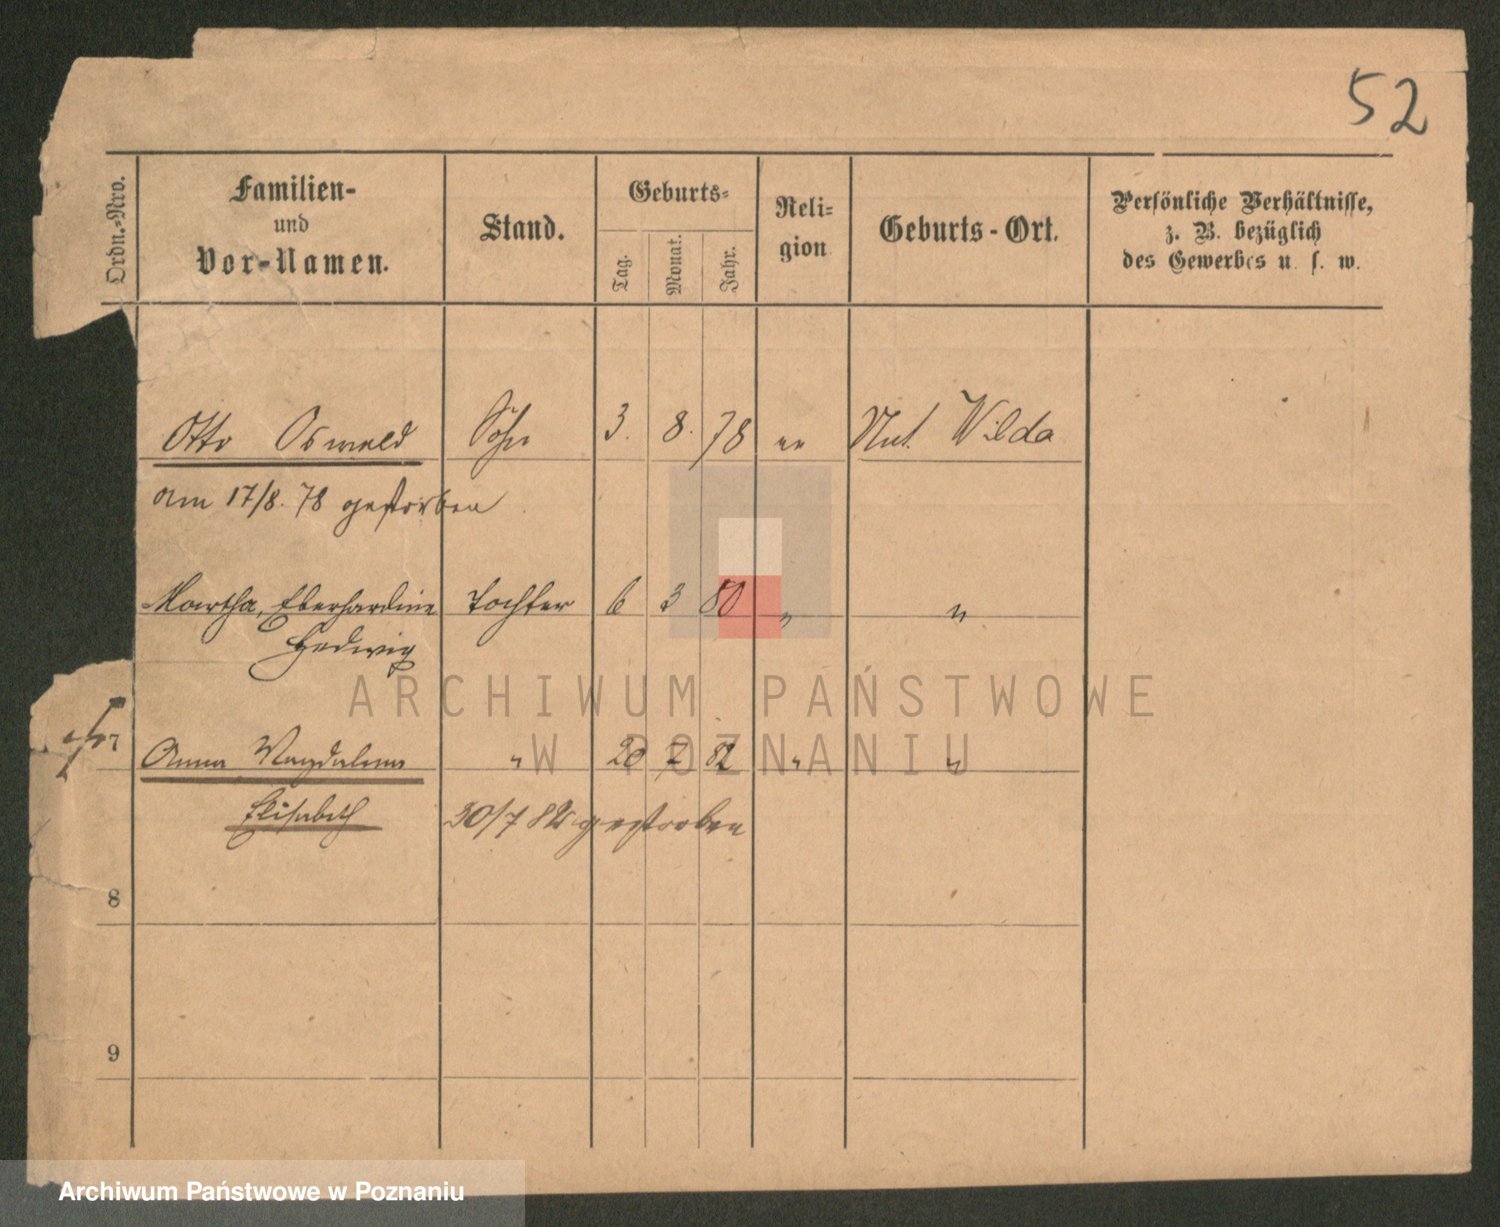 52
Ordn.-Nro.
Familien-
und
Vor-Namen.
Stand.
Geburts-
Tag.
Monat.
Jahr.
Reli-
gion
Geburts-Ort.
Persönliche Verhältnisse,
z. B. bezüglich
des Gewerbes u. s. w.
Otto Oswald Sohn 3. 8. 78 Wilda
am 17/8. 78 gestorben
Martha, Eberhardine Tochter 6 3 80 " "
Hedwig
7 Anna Magdalena " 20 7 82 " "
Elisabeth 30/7 82 gestorben
8
9
ARCHIWUM PAŃSTWOWE
W POZNANIU
Archiwum Państwowe w Poznaniu